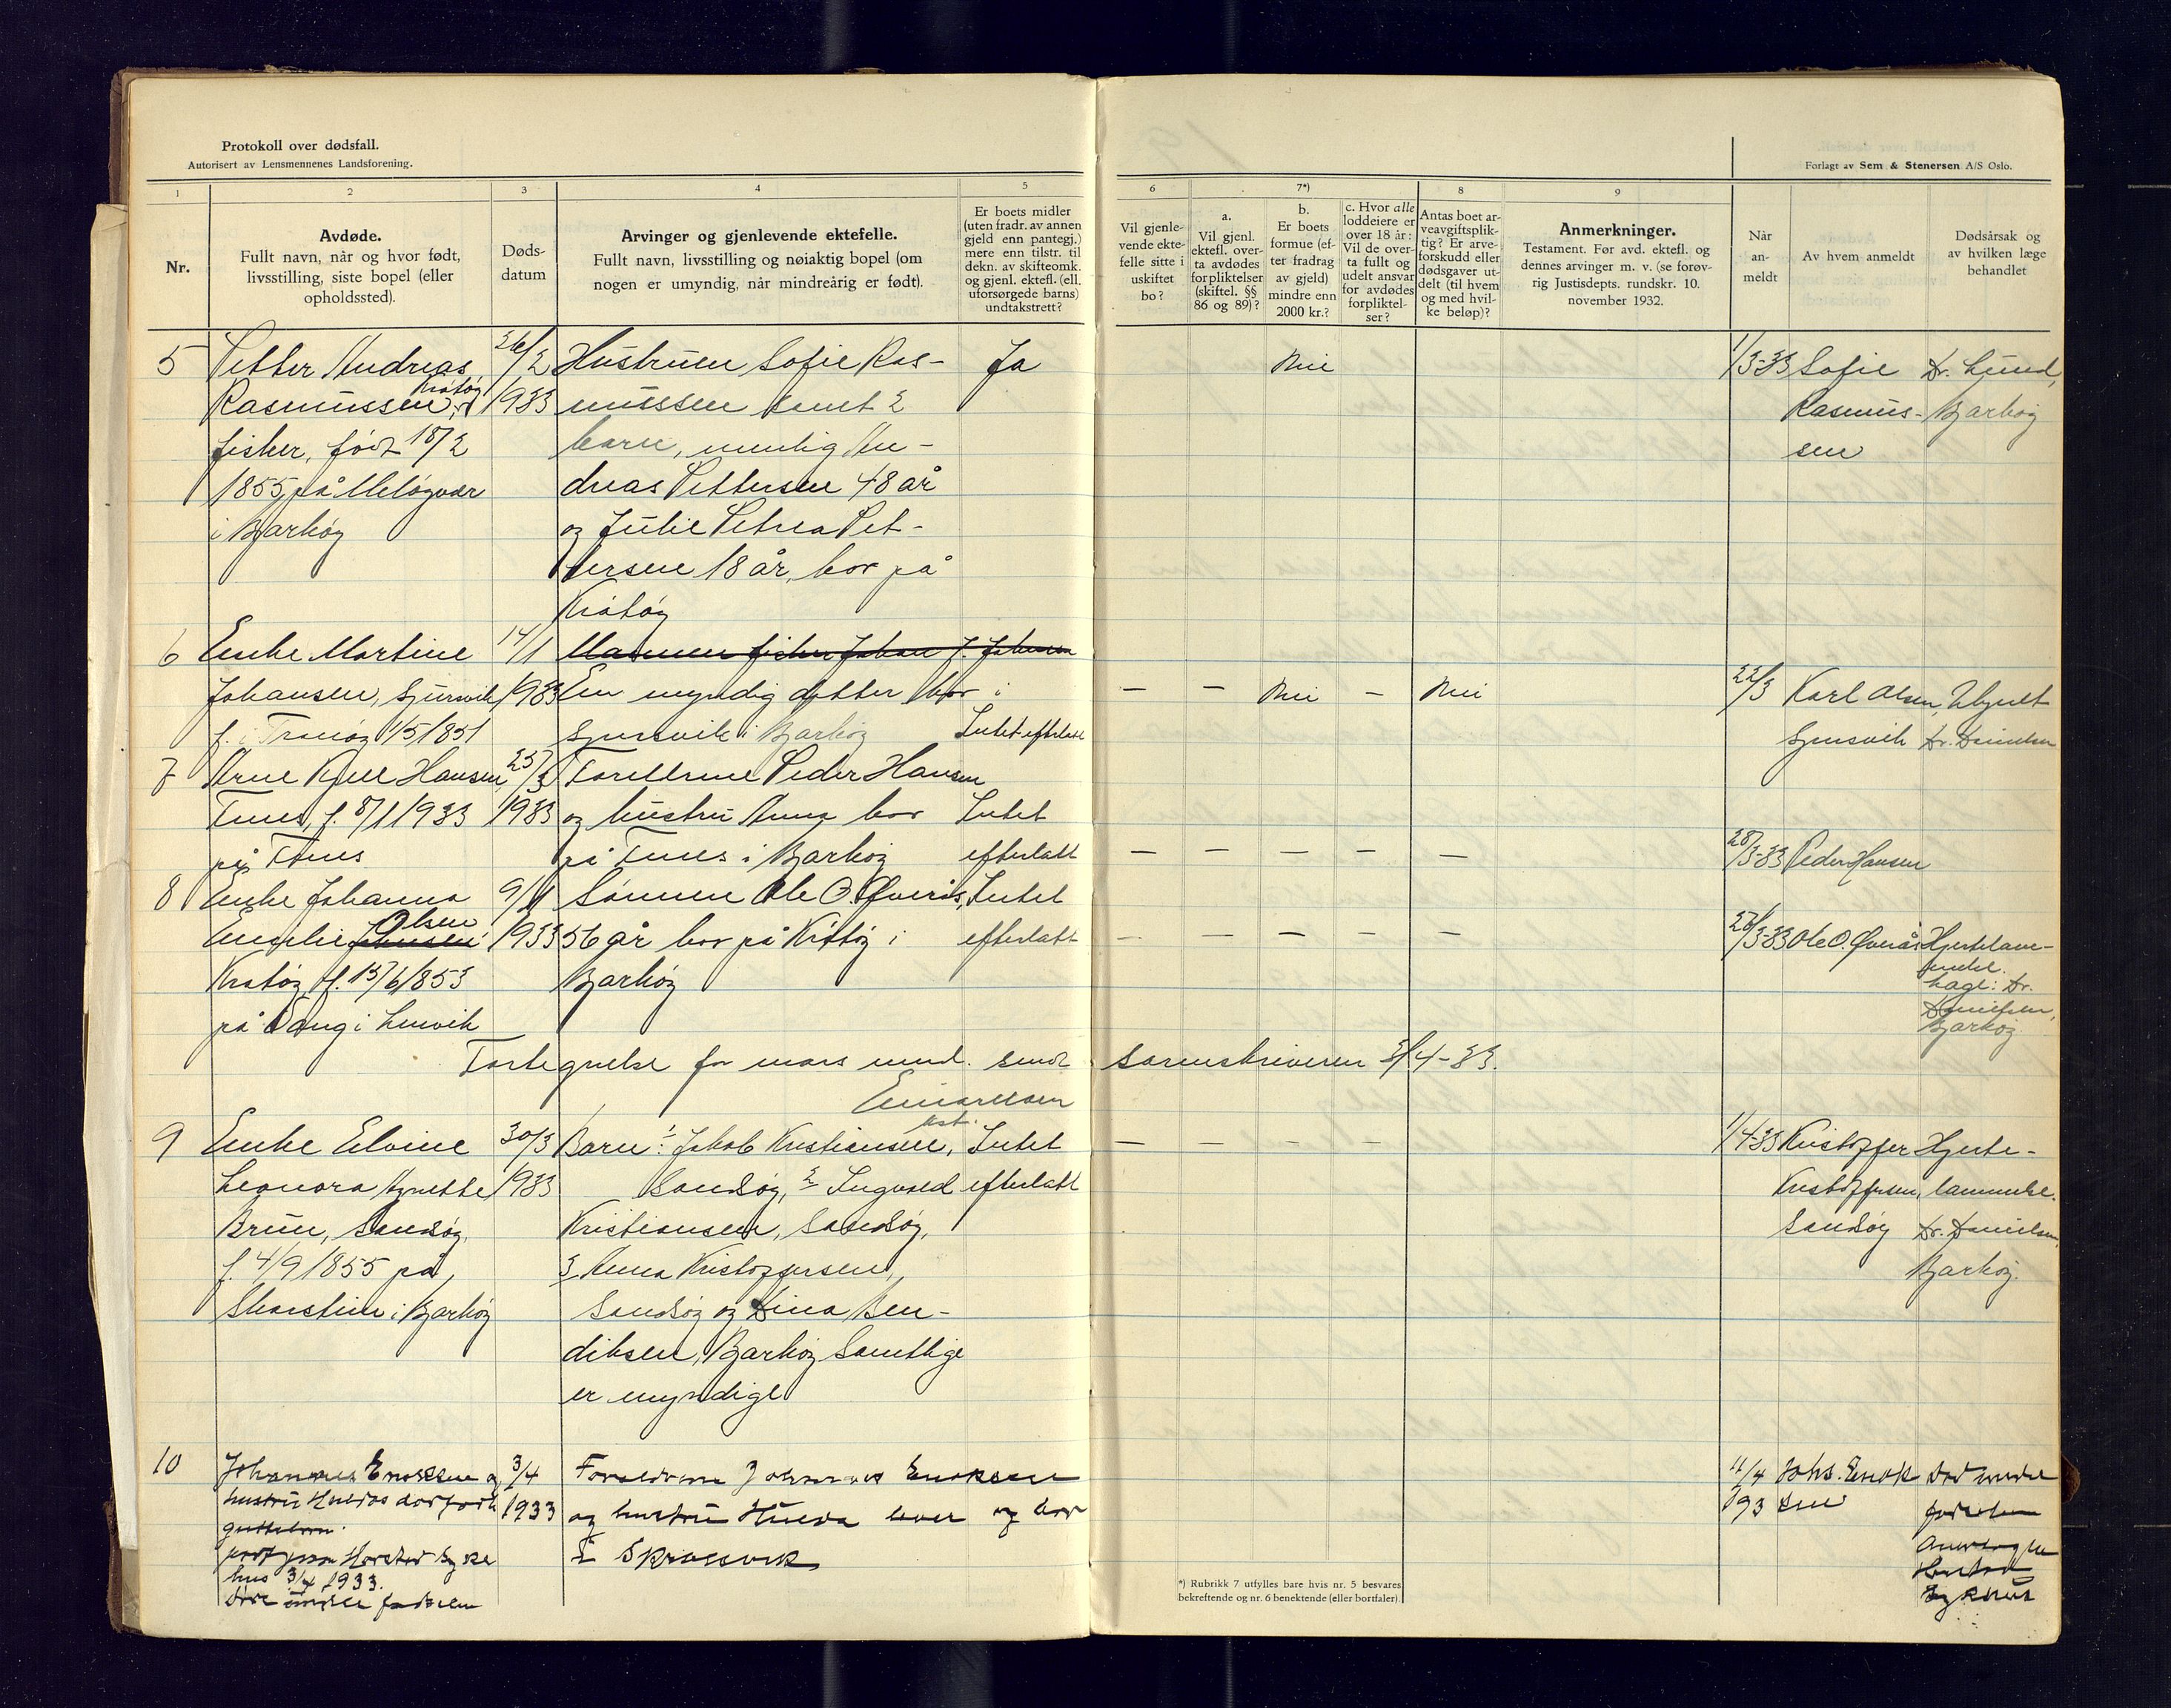 Protokoll over dødsfall.
Autorisert av Lensmennenes Landsforening.
Forlagt av Sem & Stenersen A/S Oslo.
1
2
3
4
5
6
7*)
8
9
Nr.
Avdøde.
Fullt navn, når og hvor født,
livsstilling, siste bopel (eller
opholdssted).
Døds-
datum
Arvinger og gjenlevende ektefelle.
Fullt navn, livsstilling og nøiaktig bopel (om
nogen er umyndig, når mindreårig er født).
Er boets midler
(uten fradr. av annen
gjeld enn pantegj.)
mere enn tilstr. til
dekn. av skifteomk.
og gjenl. ektefl. (ell.
uforsørgede barns)
undtakstrett?
Vil gjenle-
vende ekte-
felle sitte i
uskiftet
bo?
a.
Vil gjenl.
ektefl. over-
ta avdødes
forpliktelser
(skiftel. §§
86 og 89)?
b.
Er boets
formue (ef-
ter fradrag
av gjeld)
mindre enn
2000 kr.?
c. Hvor alle
loddeiere er
over 18 år:
Vil de over-
ta fullt og
udelt ansvar
for avdødes
forpliktel-
ser?
Antas boet ar-
veavgiftsplik-
tig? Er arve-
forskudd eller
dødsgaver ut-
delt (til hvem
og med hvil-
ke beløp)?
Anmerkninger.
Testament. Før avd. ektefl. og
dennes arvinger m. v. (se forøv-
rig Justisdepts. rundskr. 10.
november 1932.
Når
an-
meldt
Av hvem anmeldt
Dødsårsak og
av hvilken læge
behandlet
5
Petter Andreas
Krøtøy
Rasmussen,
fisker, født 18/2
1855 på Meløyvær
i Bjarkøy
26/2
1933
Hustruen Sofie Ras-
mussen samt 2
barn, nemlig An-
dreas Pettersen 48 år
og Julie Petrea Pet-
tersen 18 år, bor på
Krøtøy
Ja
Nei
1/3-33
Sofie
Rasmus-
sen
Dr. Lund,
Bjarkøy
6
Enke Martine
Johansen, Sjursvik
f. i Tranøy 1/5 1851
14/1
1933
Mannen fisker Johan J. Johansen
En myndig datter bor i
Sjursvik i Bjarkøy
Intet efterlatt
— — Nei — Nei
22/3
Karl Olsen,
Sjursvik
Ukjent
Dr. Danielsen
7
Arne Kjell Hansen,
Fnes, f. 8/1 1933
på Fnes
25/3
1933
Foreldrene Peder Hansen
og hustru Anna bor
på Fnes i Bjarkøy
Intet
efterlatt
— — — — —
28/3-33
Peder Hansen
8
Enke Johanna
Olsen
Amalie Johnsen
Krøtøy f. 15/6 1853
på Vang i Lenvik
9/1
1933
Sønnen Ole O. Øverås,
56 år bor på Krøtøy i
Bjarkøy
Intet
efterlatt
— — — — —
28/3-33
Ole O. Øverås
Hjertelam-
melse.
Læge: Dr.
Danielsen,
Bjarkøy
Fortegnelse for mars mnd. sendt sorenskriveren 3/4-33.
Einarsen
kst.
9
Enke Elvine
Leonora Agnethe
Bruu, Sandsøy,
f. 4/9 1855 på
Skarstein i Bjarkøy
30/3
1933
Barn: 1 Jakob Kristiansen,
Sandsøy, 2 Ingvald
Kristiansen, Sandsøy,
3 Anna Kristoffersen,
Sandsøy og Dina Ben-
diksen, Bjarkøy Samtlige
er myndige
Intet
efterlatt
— — — —
1/4-33
Kristoffer
Kristoffersen,
Sandsøy
Hjerte-
lammelse.
Dr. Danielsen,
Bjarkøy.
10
Johannes Enoksen og
hustru Huldas dødfødt
guttebarn.
født paa Harstad Syke
hus 3/4 1933.
Døde under fødselen
3/4
1933
Foreldrene Johannes Enoksen
og hustru Hulda lever og bor
i Skrolsvik
11/4
193
Johs. Enok
sen
Død under
fødselen
Harstad
Sykehus
*) Rubrikk 7 utfylles bare hvis nr. 5 besvares
bekreftende og nr. 6 benektende (eller bortfaler).